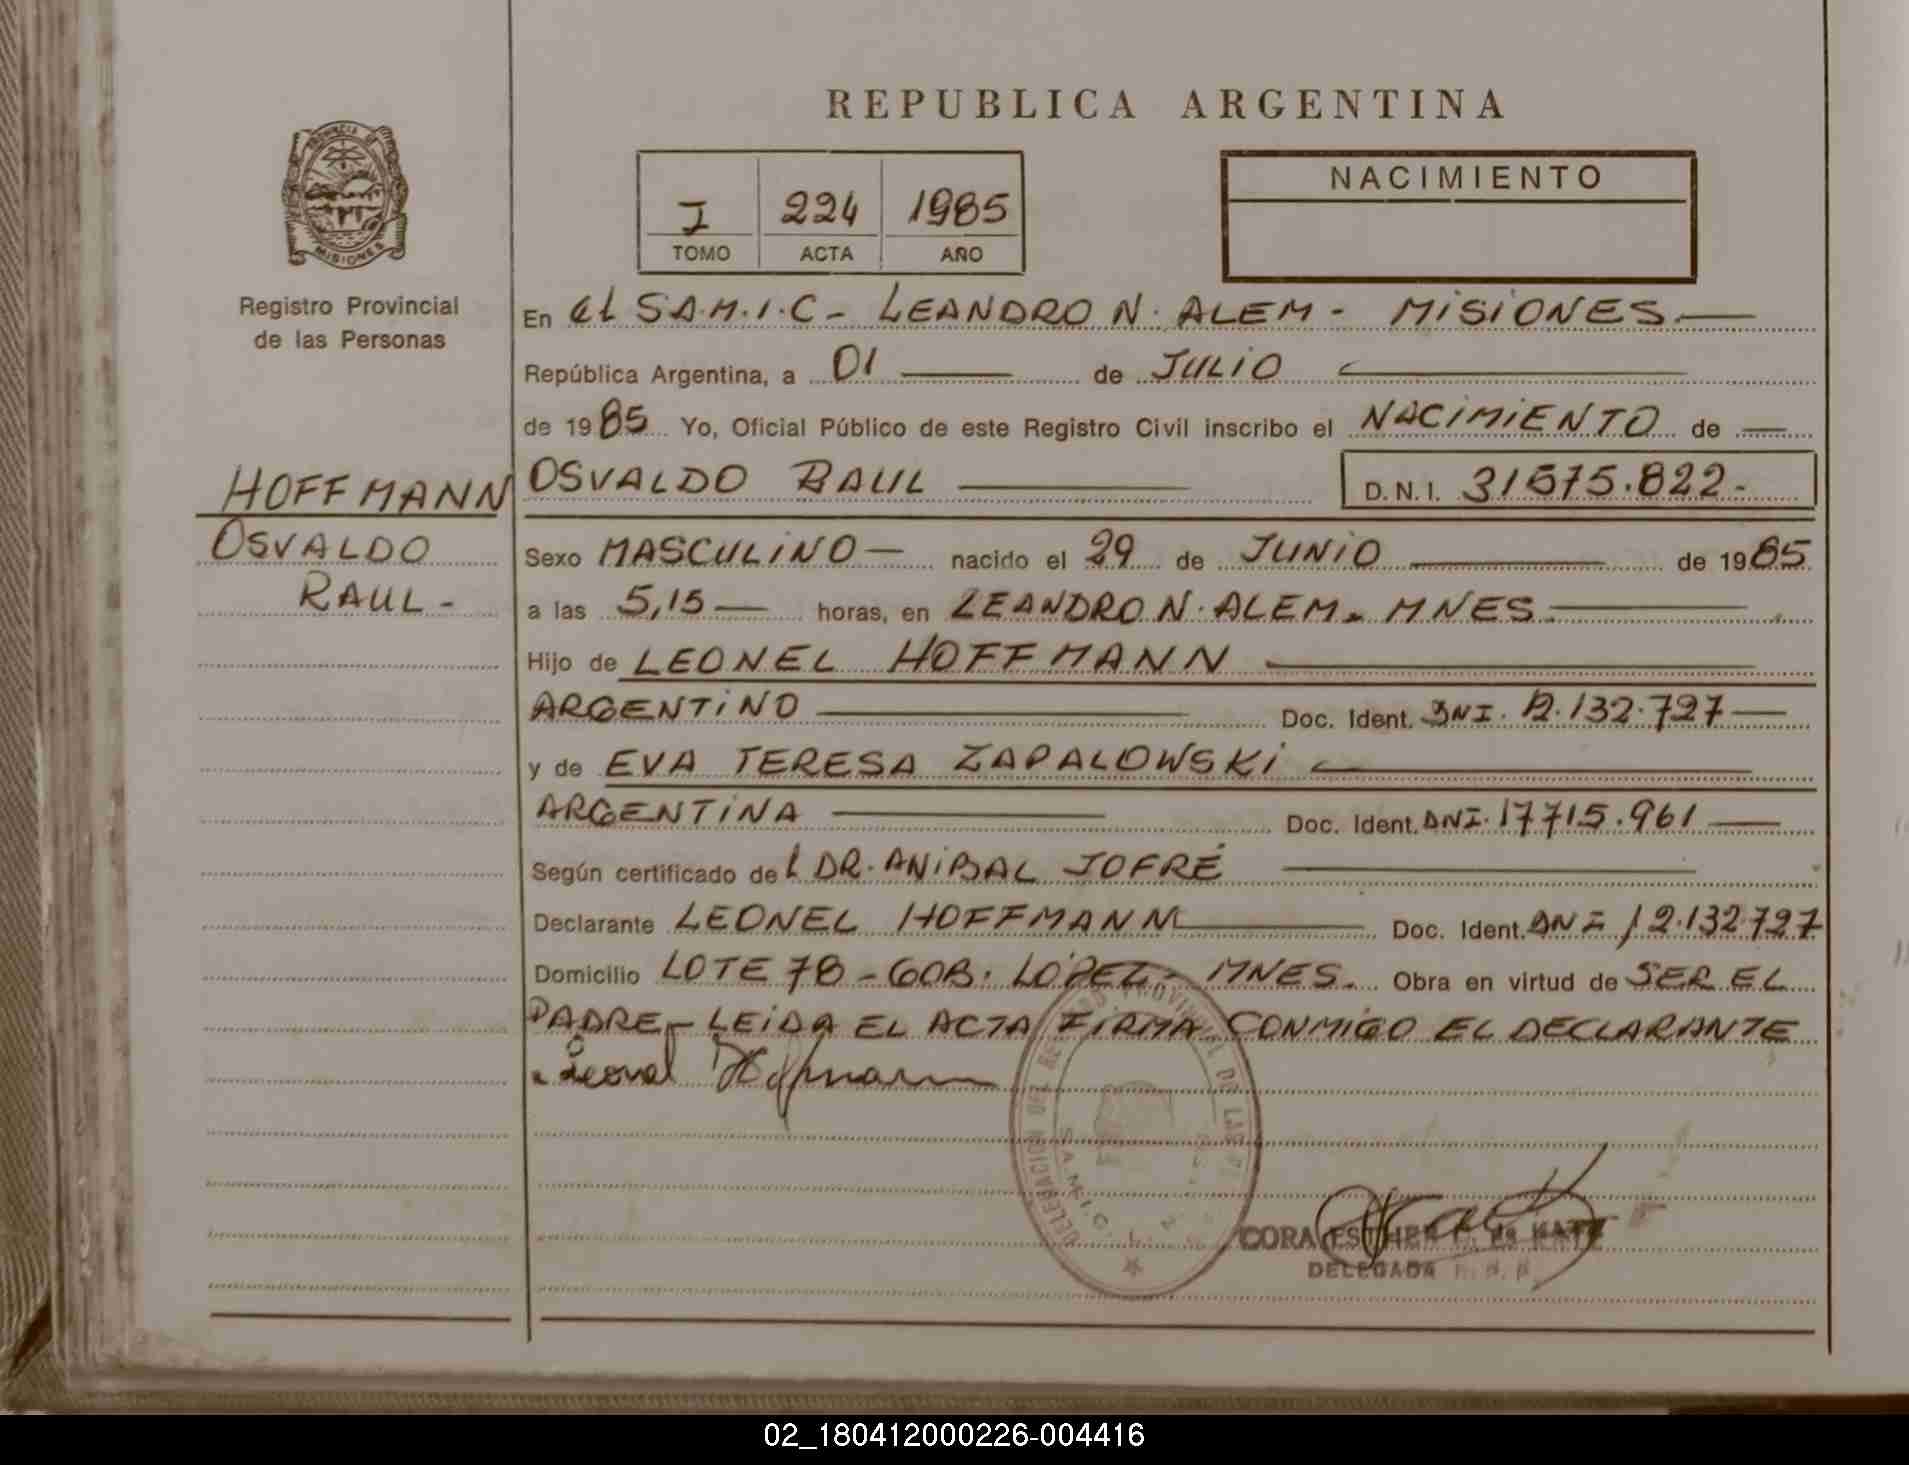 REPUBLICA ARGENTINA
PROVINCIA DE
MISIONES
Registro Provincial
de las Personas
I 224 1985
TOMO ACTA AÑO
NACIMIENTO
En el S.A.M.I.C- LEANDRO N. ALEM - MISIONES
República Argentina, a 01 de JULIO
de 1985 Yo, Oficial Público de este Registro Civil inscribo el NACIMIENTO de
HOFFMANN
OSVALDO
RAUL -
OSVALDO RAUL D.N.I. 31575.822-
Sexo MASCULINO nacido el 29 de JUNIO de 1985
a las 5,15 horas, en LEANDRO N. ALEM. MNES
Hijo de LEONEL HOFFMANN
ARGENTINO Doc. Ident. DNI. 12.132.727
y de EVA TERESA ZAPALOWSKI
ARGENTINA Doc. Ident. DNI. 17715.961
Según certificado del DR. ANIBAL JOFRÉ
Declarante LEONEL HOFFMANN Doc. Ident. DNI 12.132.727
Domicilio LOTE 78 - GOB. LOPEZ - MNES. Obra en virtud de SER EL
PADRE - LEIDA EL ACTA FIRMA CONMIGO EL DECLARANTE
Leonel Hoffmann
DELEGACION DEL REGISTRO PROVINCIAL DE LAS
S.A.M.I.C.
CORA ESTHER de KATZ
DELEGADA
02_180412000226-004416